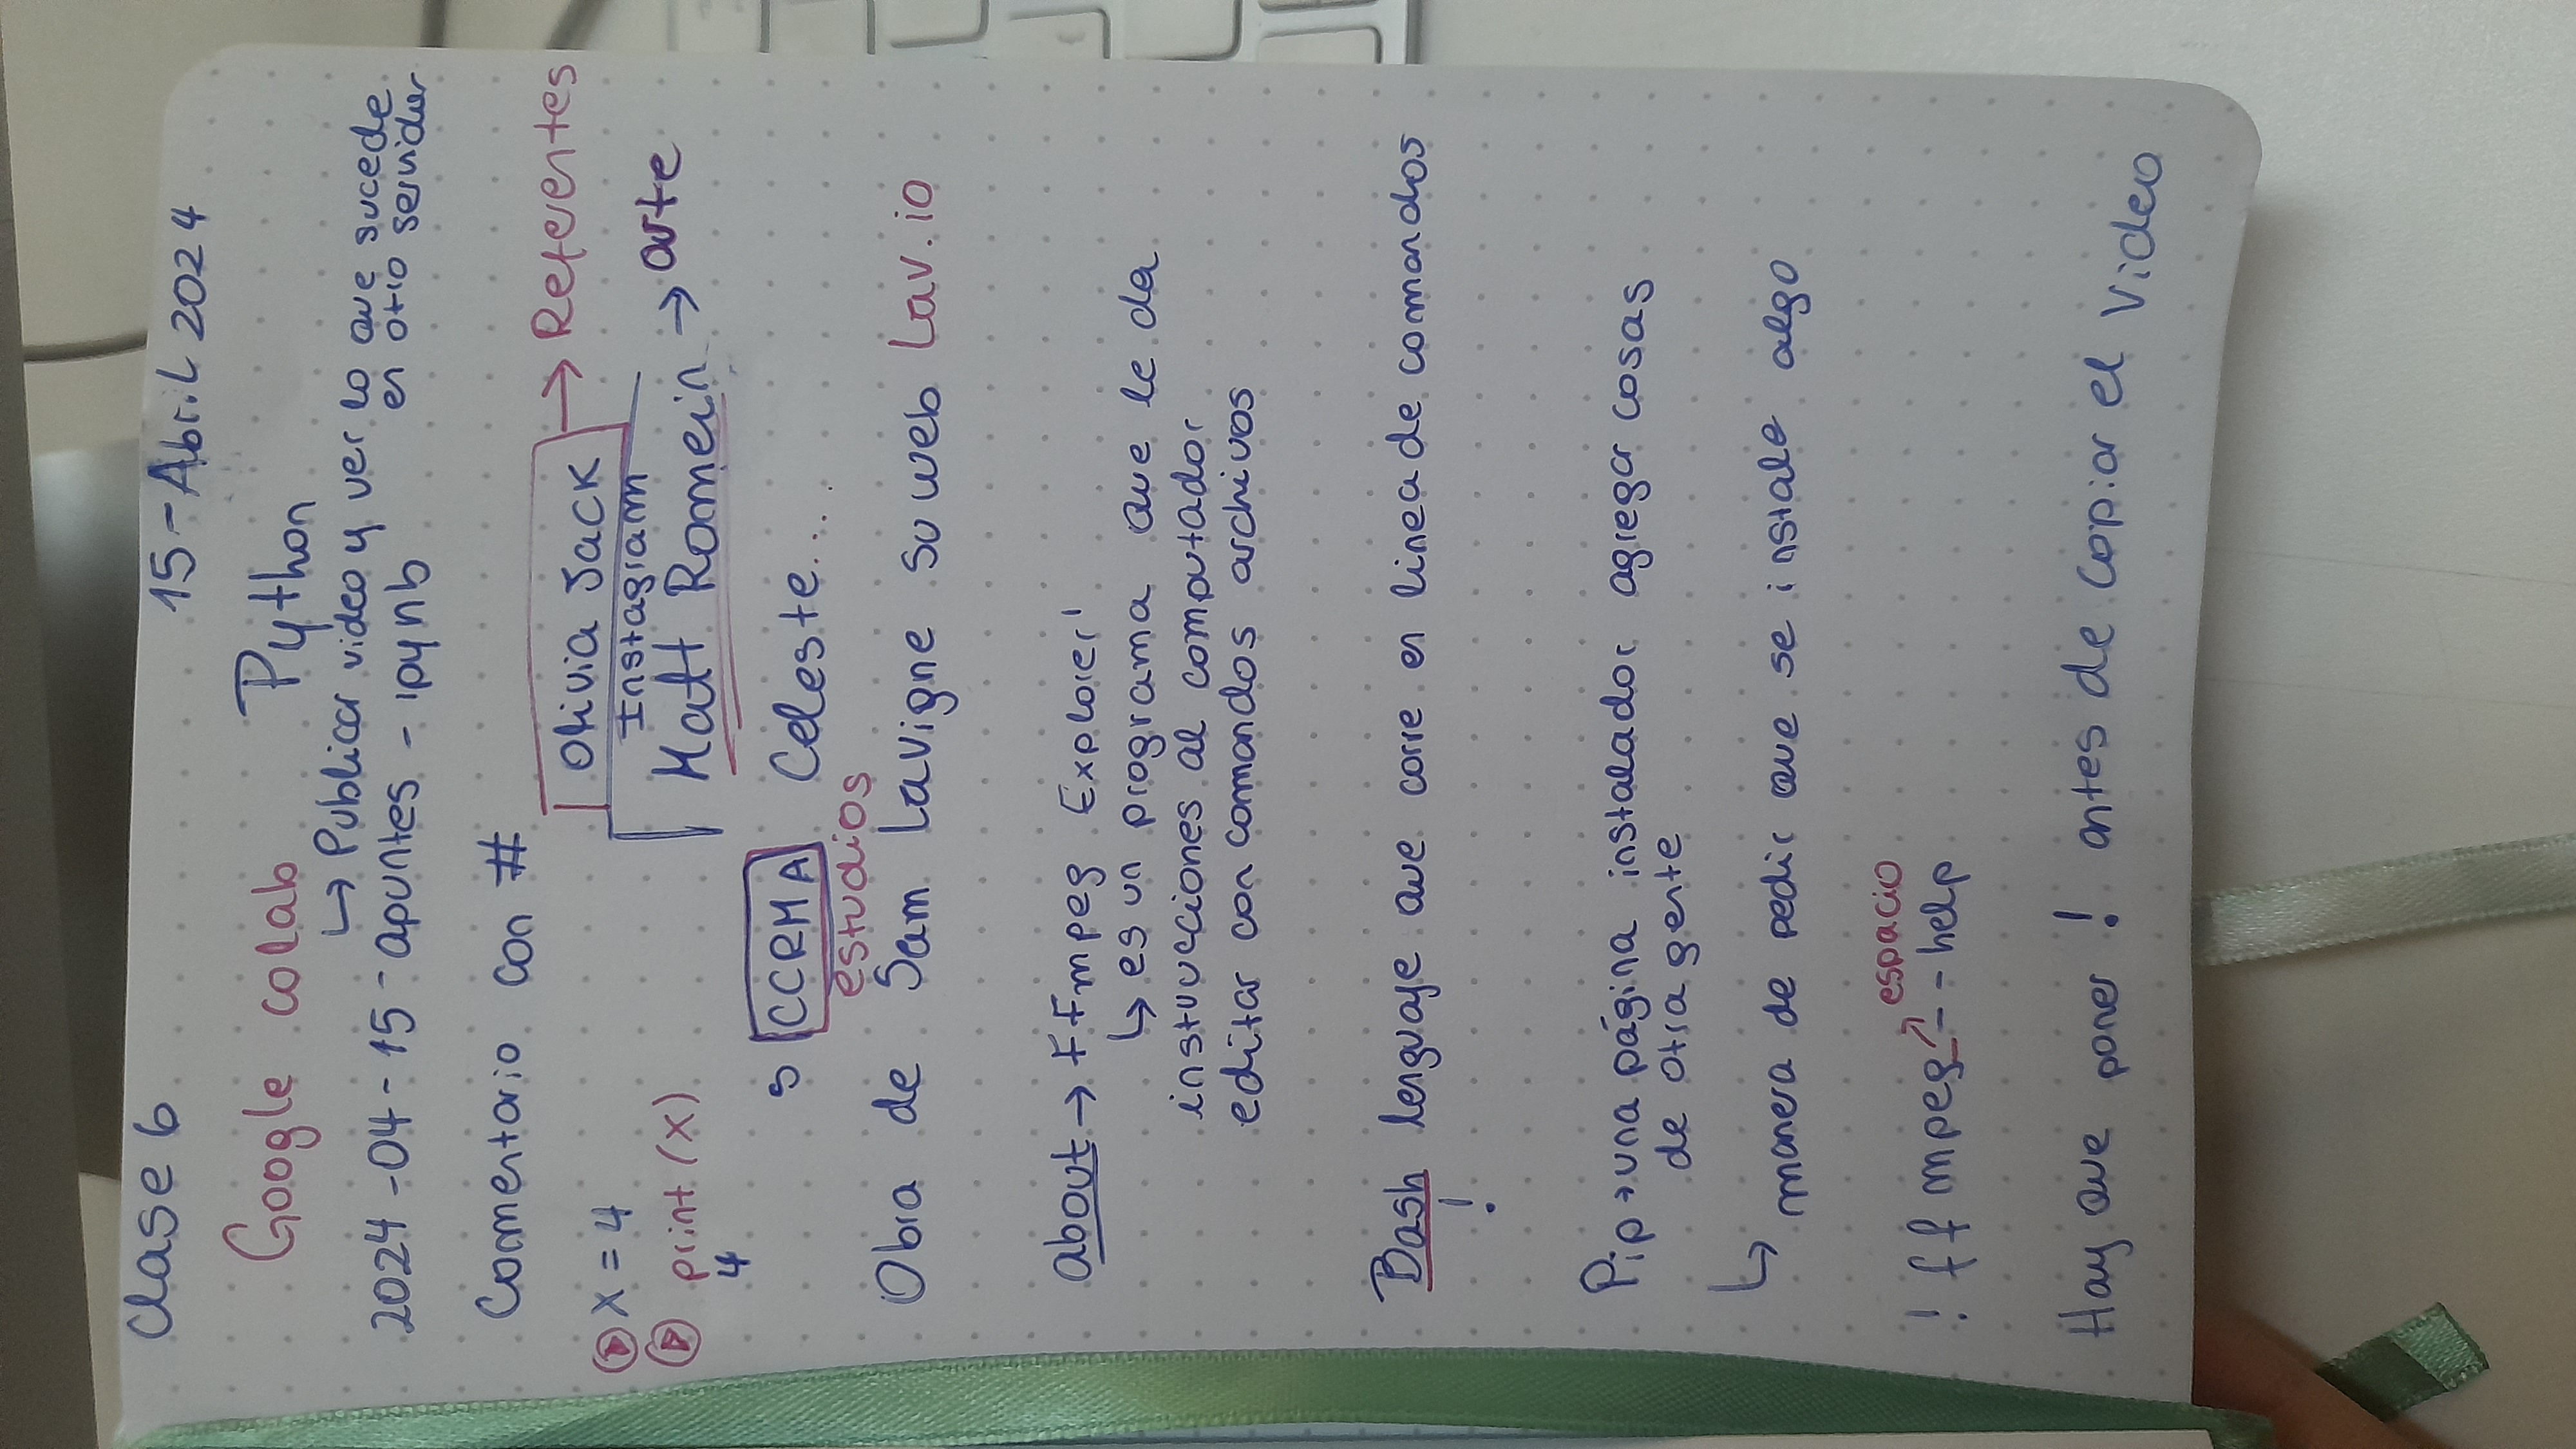 Clase 6
15-Abril 2024
Google colab Python
↳ Publicar video y ver lo que sucede
en otro servidor
2024-04-15-apuntes-ipynb
Comentario con #
Olivia Jack → Referentes
Instagram
X = 4
print (X)
4
Matt Romein → arte
S CCRMA Celeste....
estudios
Obra de Sam Lavigne su web Lav.io
about → FFmpeg Explorer'
↳ es un programa que le da
instrucciones al computador
editar con comandos archivos
Bash lenguaje que corre en linea de comandos
!
Pip → una página instalador agregar cosas
de otra gente
↳ manera de pedir que se instale algo
espacio
! ffmpeg --help
Hay que poner ! antes de copiar el video